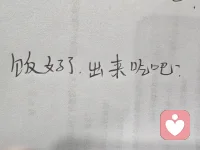 饭好了.出来吃吧: